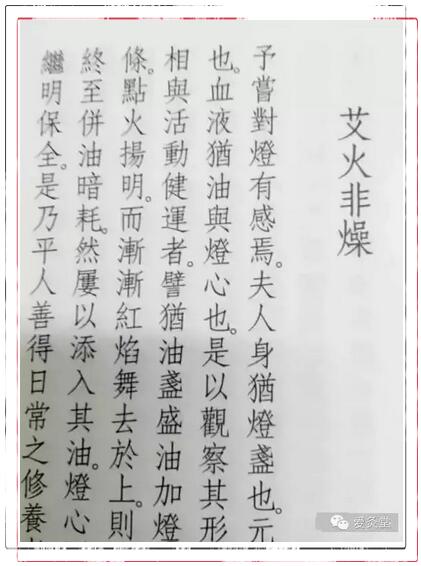 艾火非燥
予嘗對燈有感焉。夫人身猶燈盞也。元
也。血液猶油與燈心也。是以觀察其形
相與活動健運者。譬猶油盞盛油加燈
條。點火揚明。而漸漸紅焰舞去於上。則
終至併油暗耗。然屢以添入其油。燈心
繼明保全。是乃平人善得日常之修養
爱灸堂